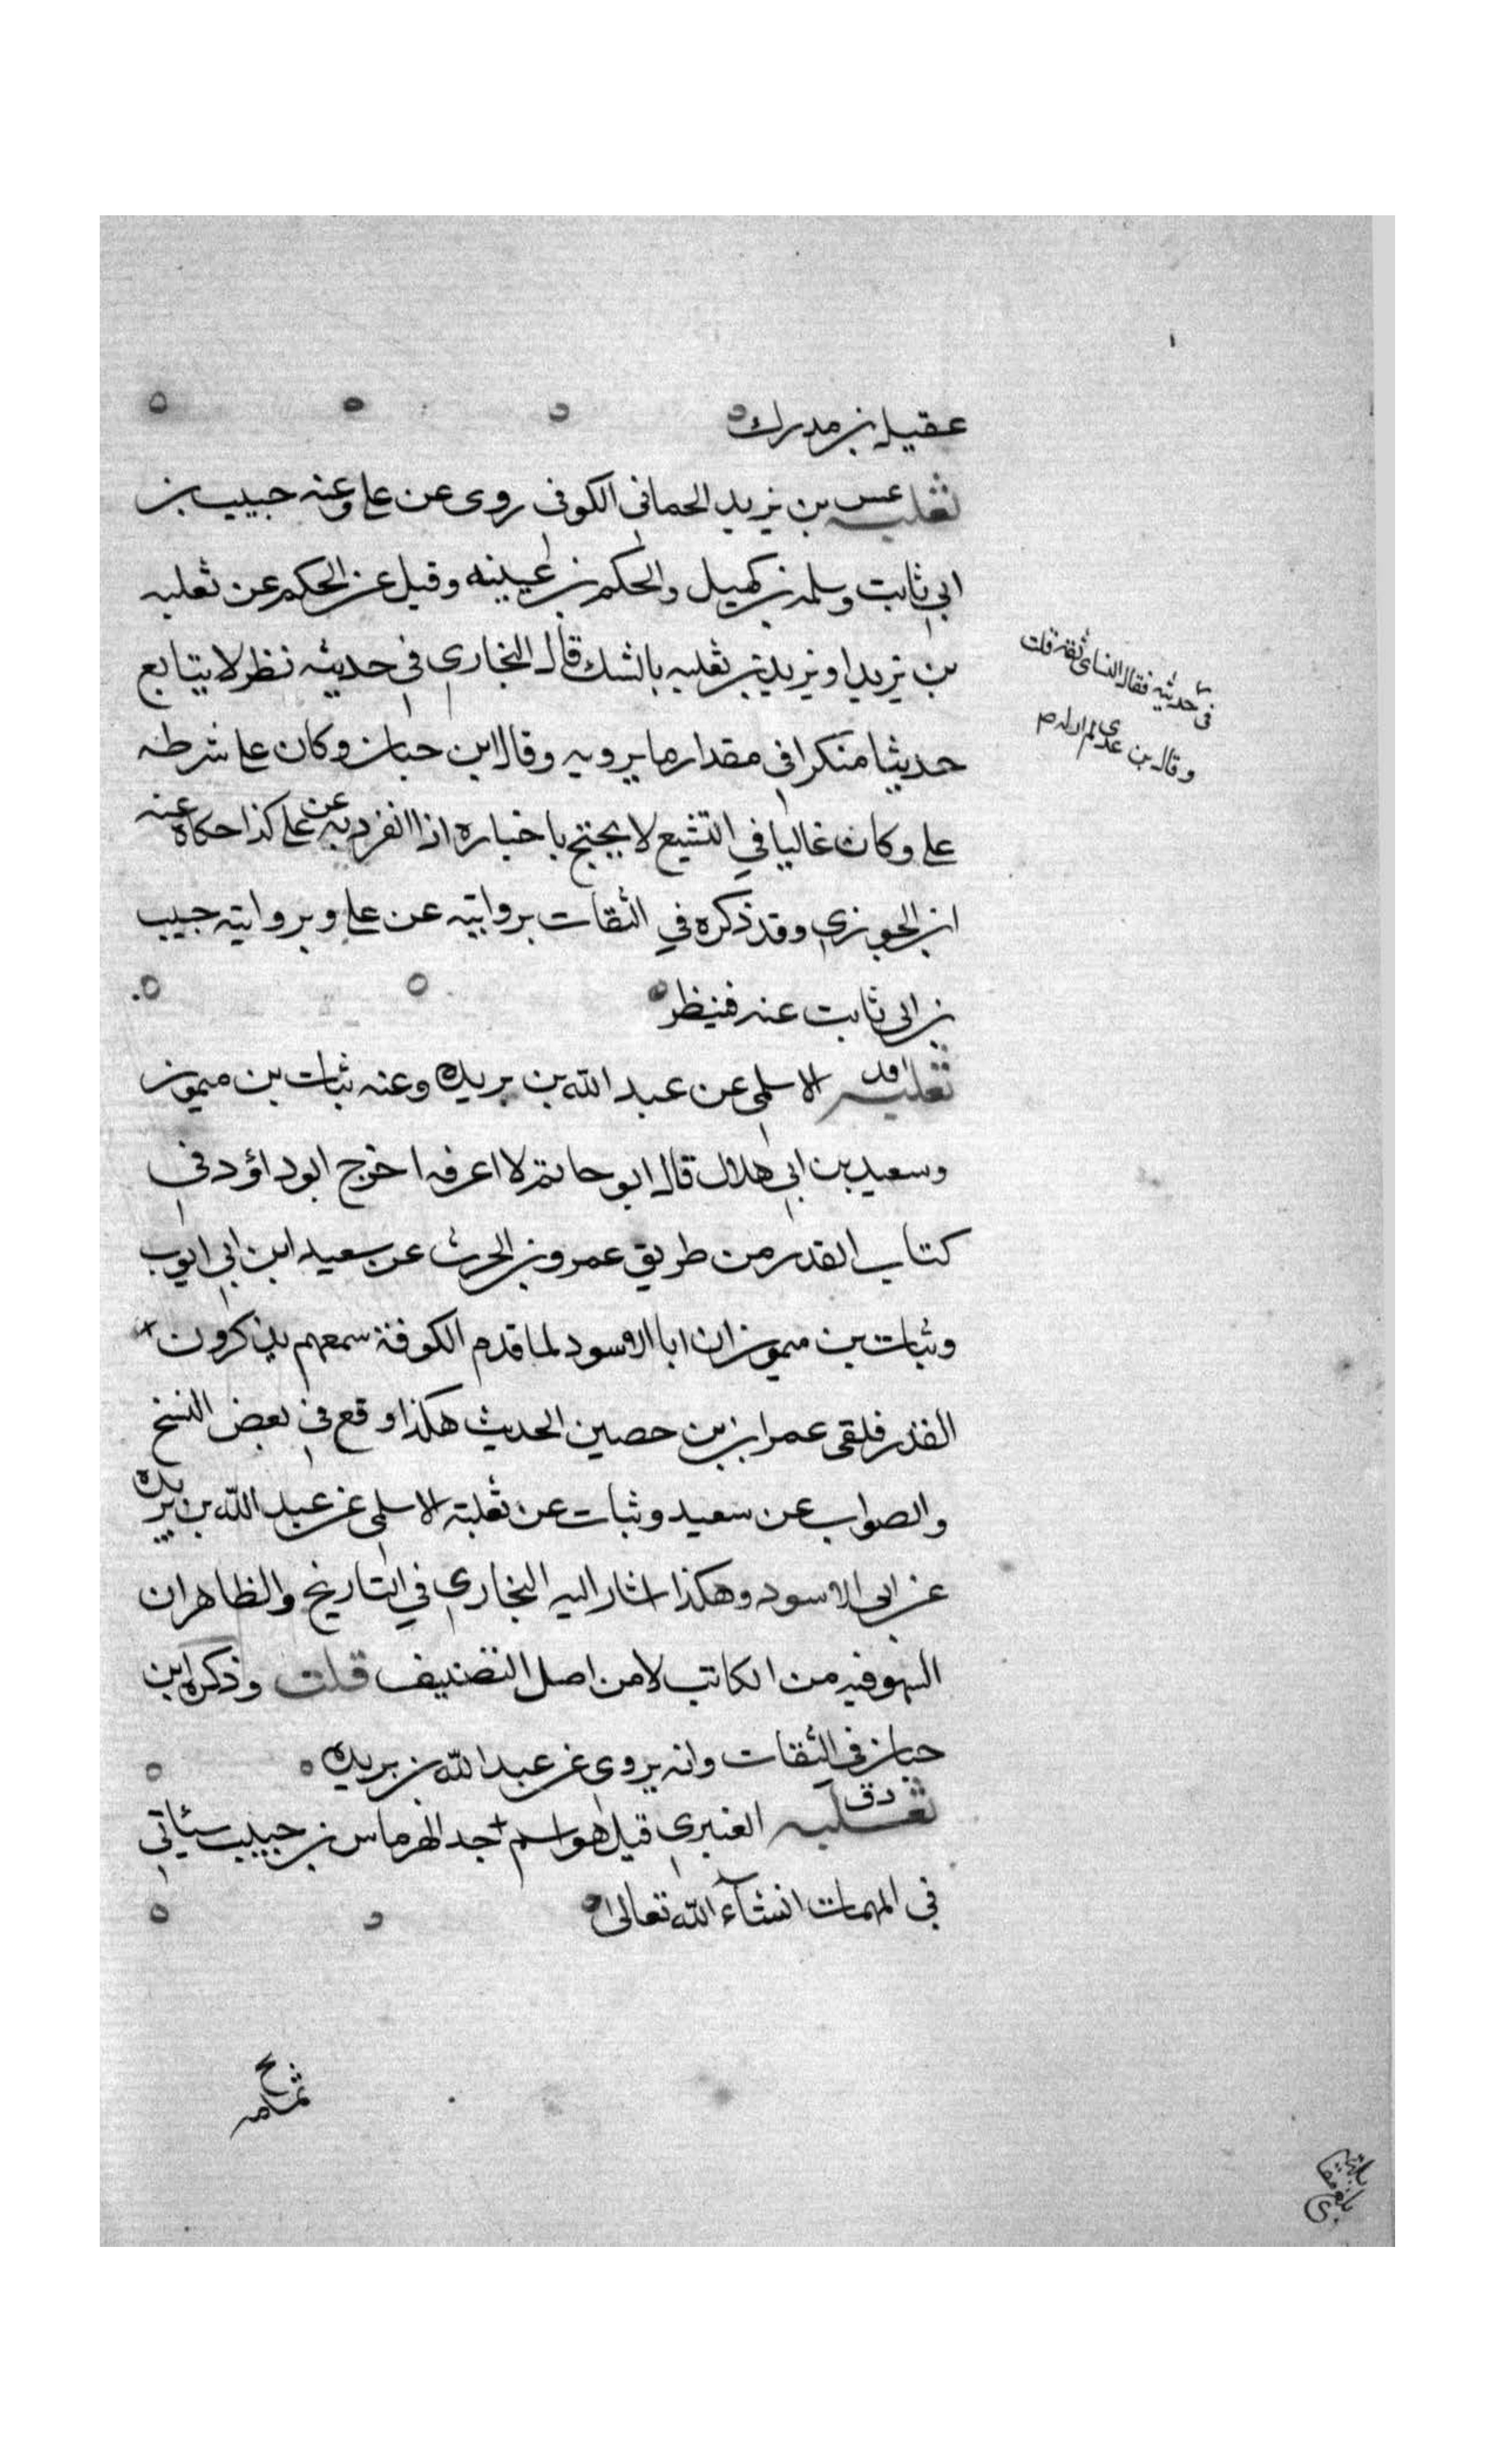 عقيل بن مدرك
ثعلبه عس بن يزيد الحماني الكوفي روى عن علي وعنه حبيب بن
ابي ثابت وسلمه بن كهيل والحكم بن عيينه وقيل عن الحكم عن ثعلبه
بن يزيد او يزيد بن ثعلبه بالشك قال البخاري في حديثه نظر لا يتابع
في حديثه فقال النساى ثقه قلت
وقال بن عدي لم ار له م
حديثا منكرا في مقدار ما يرويه وقال ابن حبان وكان على شرطه
علي وكان غاليا في التشيع لا يحتج باخباره اذا انفرد به عن علي كذا حكاه عنه
ابن الجوزي وقد ذكره في الثقات بروايته عن علي وبروايته حبيب
بن ابي ثابت عنه فينظر
ثعلبه قد الاسلمي عن عبد الله بن بريده وعنه نبات بن ميمون
وسعيد بن ابي هلال قال ابو حاتم لا اعرفه اخرج ابو داؤد في
كتاب القدر من طريق عمرو بن الحرث عن سعيد ابن ابي ايوب
ونبات بن ميمون ان ابا الاسود لما قدم الكوفة سمعهم يذكرون
القدر فلقى عمران بن حصين الحديث هكذا وقع في بعض النسخ
والصواب عن سعيد ونبات عن ثعلبة الاسلمي عن عبد الله بن بريده
عن ابي الاسود وهكذا اشار اليه البخاري في التاريخ والظاهر ان
السهو فيه من الكاتب لا من اصل التصنيف قلت وذكره ابن
حبان في الثقات وانه يروي عن عبد الله بن بريده
ثعلبه دق العنبري قيل هو اسم جد الهرماس بن حبيب سيأتي
في المبهمات انشآء الله تعالى
ثمامه